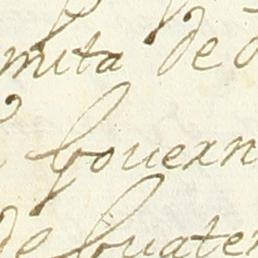 mita de
Gouern
de Guate